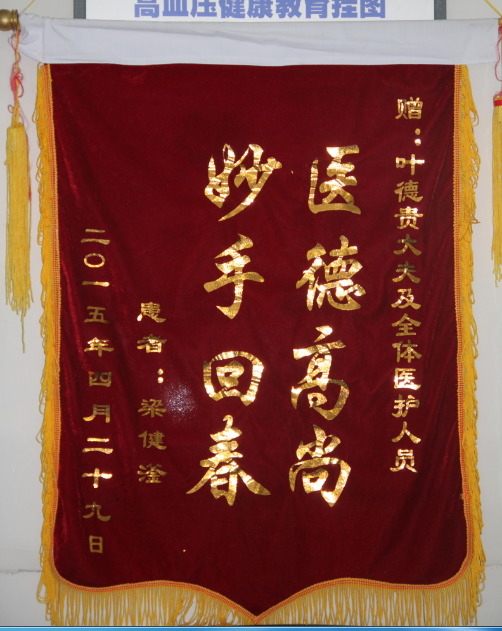 高血压健康教育挂图
赠：叶德贵大夫及全体医护人员
医德高尚
妙手回春
患者：梁健滏
二〇一五年四月二十九日